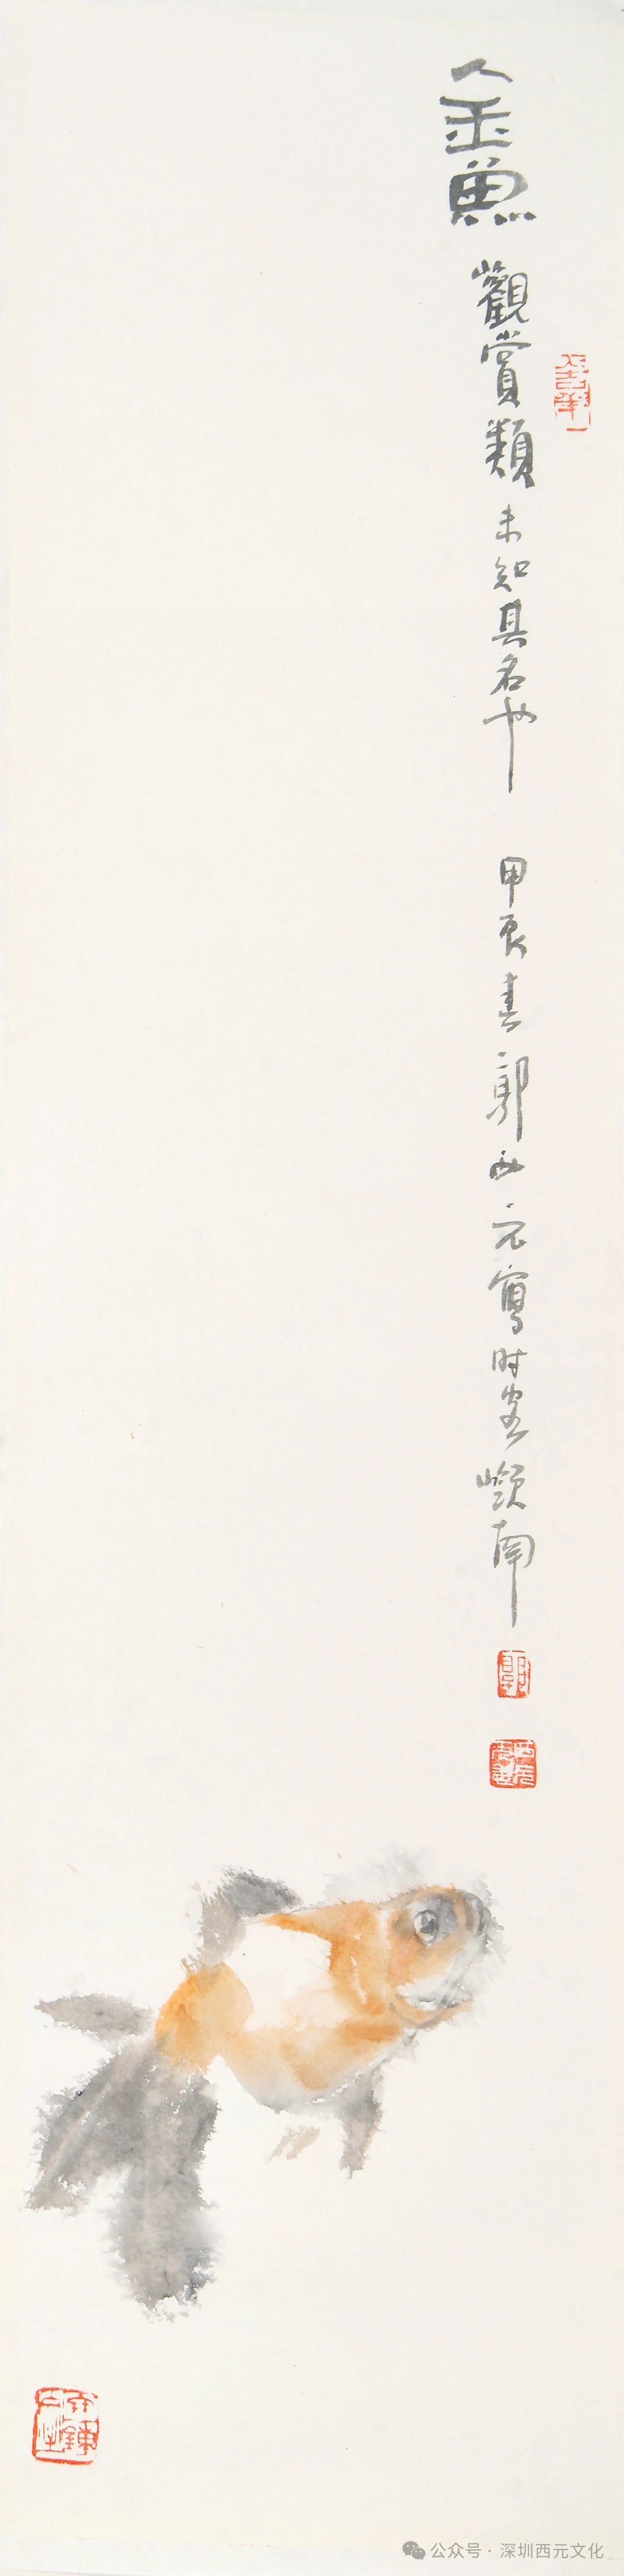 金魚 觀賞類 未知其名也 甲辰春 郭西元寫 时客嶺南
公众号 · 深圳西元文化